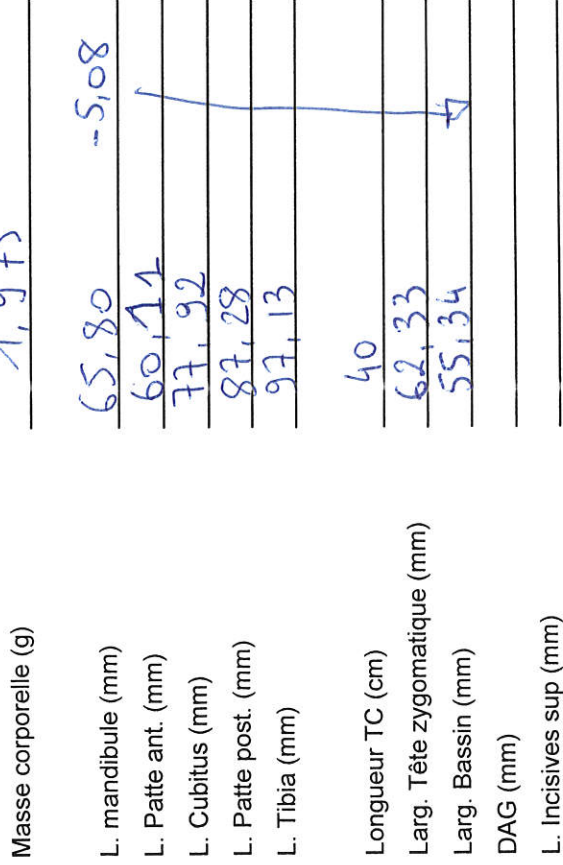 Masse corporelle (g) 1,975
L. mandibule (mm) 65,80 -5,08
L. Patte ant. (mm) 60,11
L. Cubitus (mm) 77,92
L. Patte post. (mm) 87,28
L. Tibia (mm) 97,13
Longueur TC (cm) 40
Larg. Tête zygomatique (mm) 62,33
Larg. Bassin (mm) 55,34
DAG (mm)
L. Incisives sup (mm)